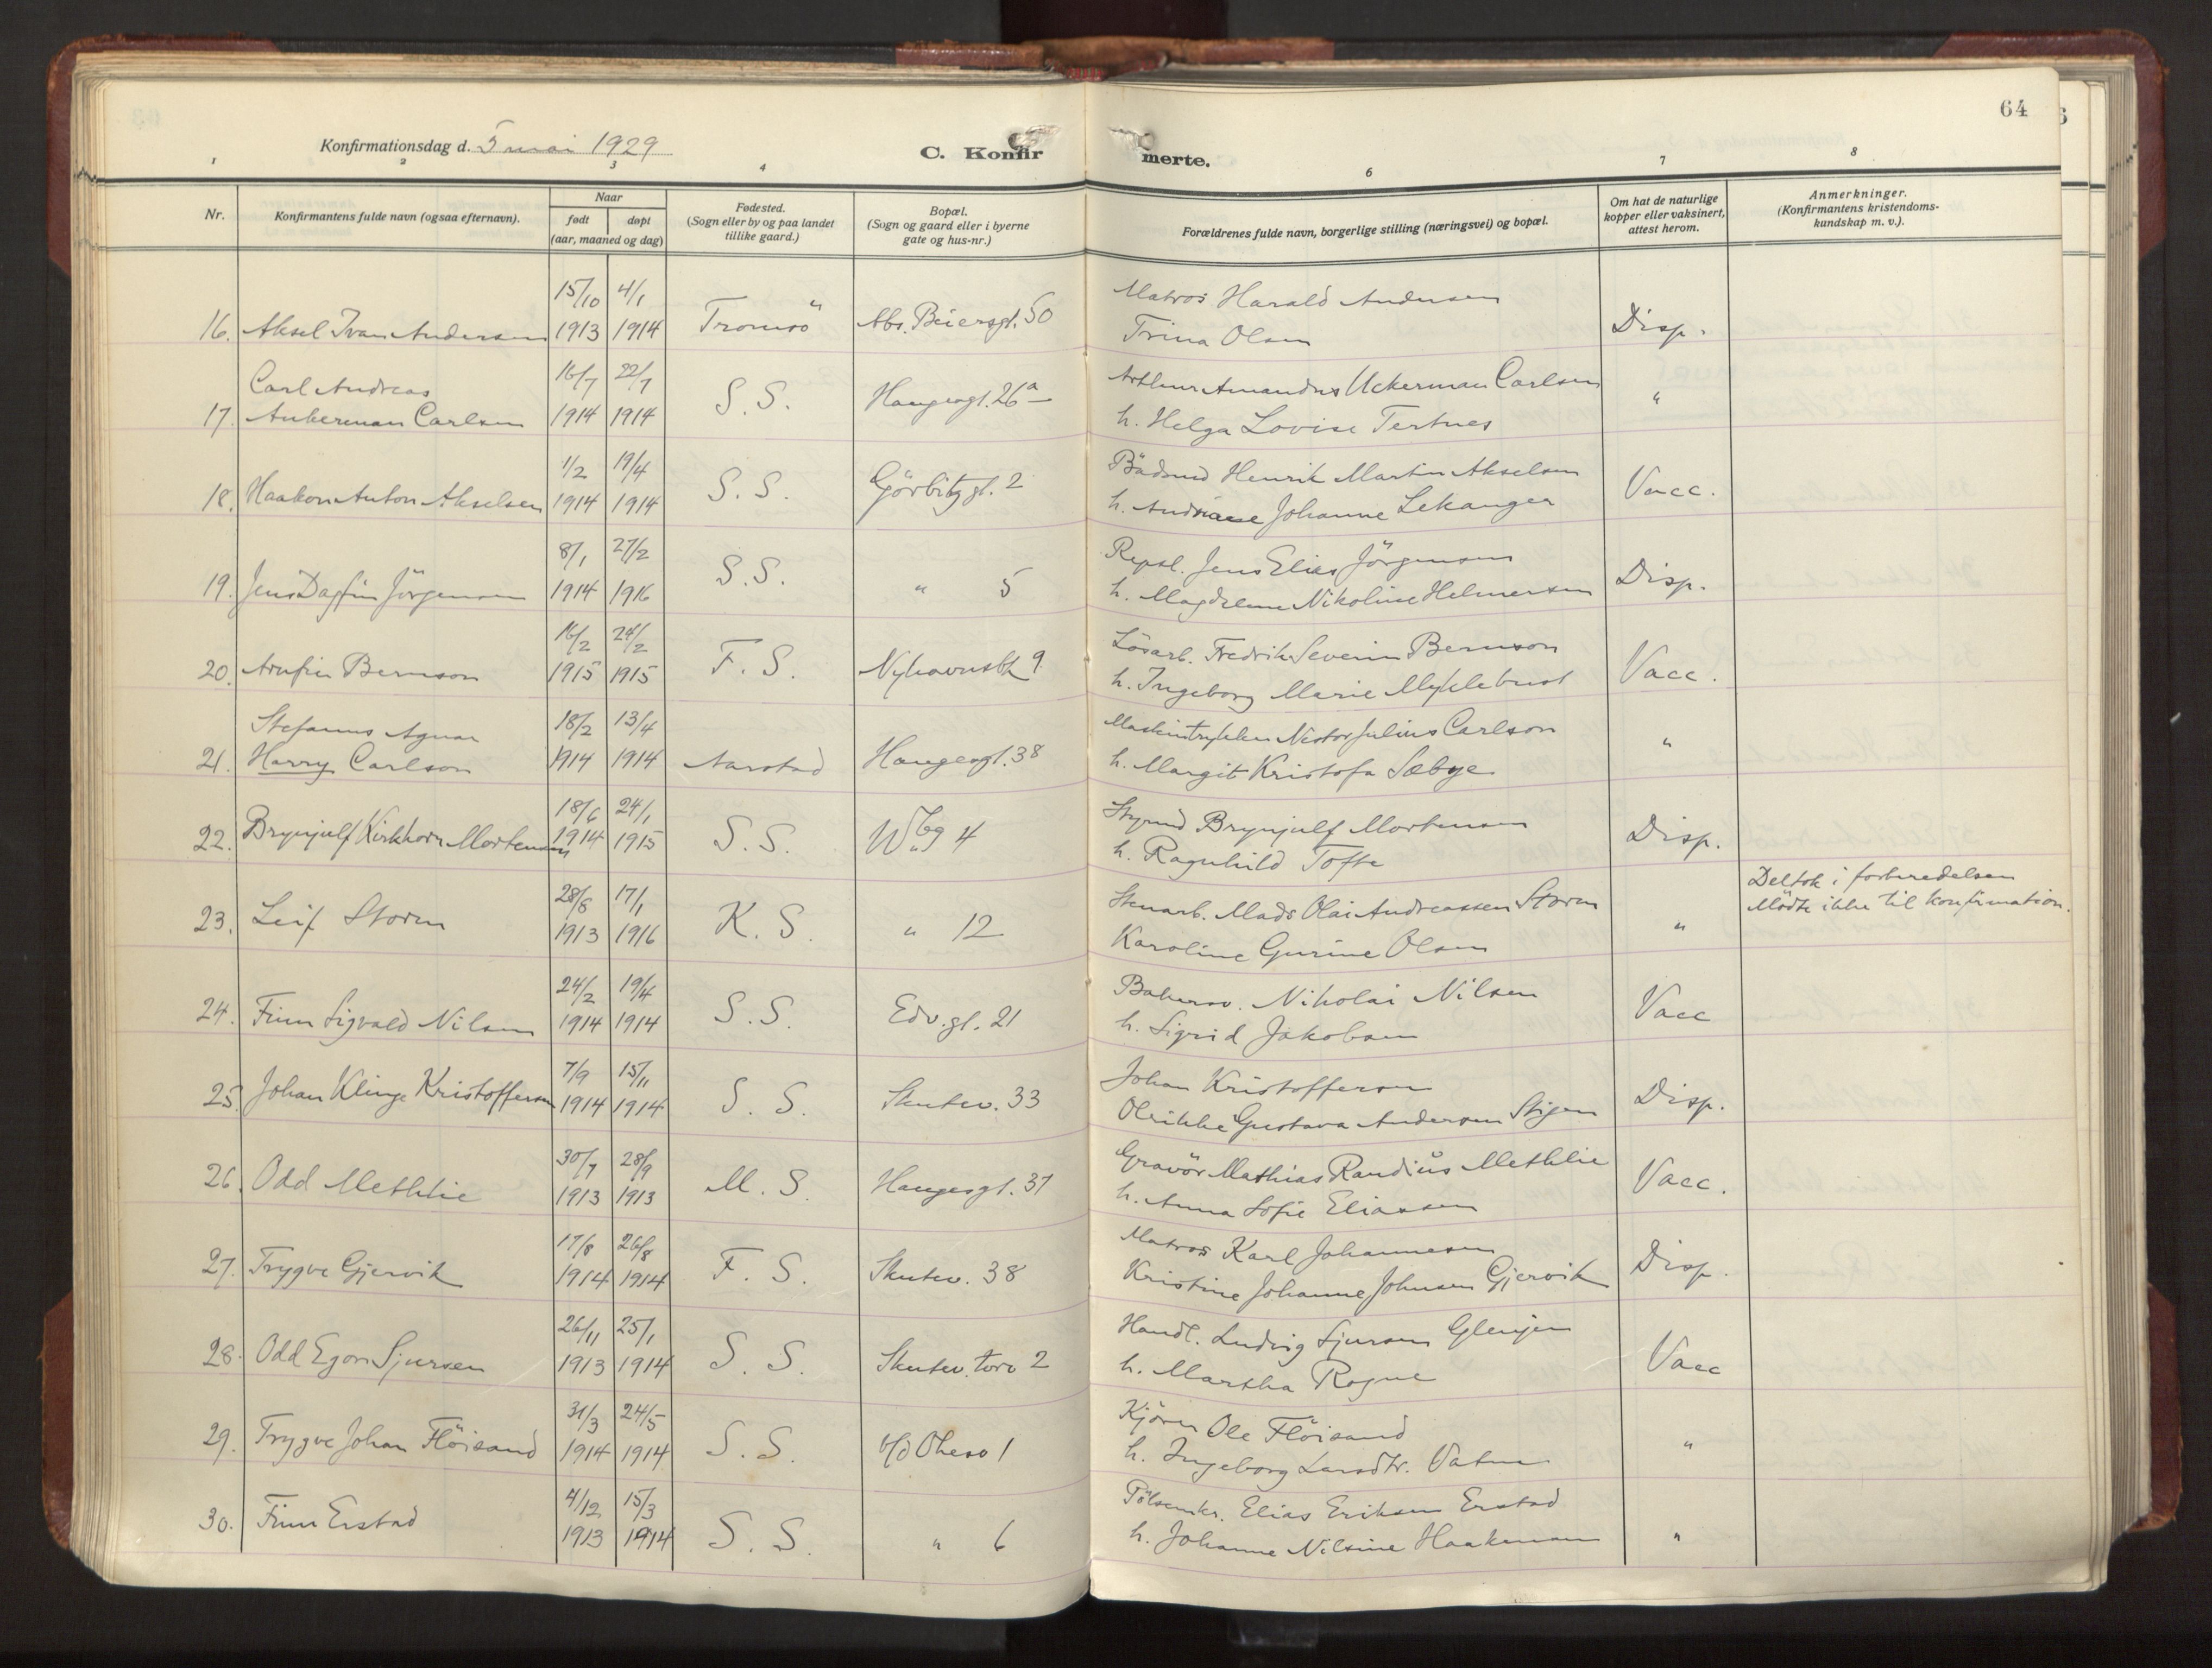 64
Konfirmationsdag d. 5 mai 1929
C. Konfir merte.
1 2 3 4 6 7 8
Nr.
Konfirmantens fulde navn (ogsaa efternavn).
Naar
født døpt
(aar, maaned og dag)
Fødested.
(Sogn eller by og paa landet
tillike gaard.)
Bopæl.
(Sogn og gaard eller i byerne
gate og hus-nr.)
Forældrenes fulde navn, borgerlige stilling (næringsvei) og bopæl.
Om hat de naturlige
kopper eller vaksinert,
attest herom.
Anmerkninger.
(Konfirmantens kristendoms-
kundskap m. v.).
15/10 4/1 Matros Harald Andersen
16. Aksel Ivan Andersen 1913 1914 Tromsö Abs. Beiersgt. 50 Trina Olsen Disp.
Carl Andreas 16/7 22/7 Arthur Amandus Uckerman Carlsen
17. Ankerman Carlsen 1914 1914 S. S. Haugesgt. 26a h. Helga Lovise Tertnes "
1/2 19/4 Bådsmd Henrik Martin Akselsen
18. Haakon Anton Akselsen 1914 1914 S. S. Görbitzgt. 2 h. Johanne Lekanger Vacc.
8/1 27/2 Repsl. Jens Elias Jörgensen
19. Jens Dagfin Jörgensen 1914 1916 S. S. " 5 h. Magdalene Nikoline Helmersen Disp.
16/2 24/2 Lösarb. Fredrik Severin Bernson
20. Arnfin Bernson 1915 1915 F. S. Nyhavnsbk 9 h. Ingeborg Marie Myklebust Vacc.
Stefanus Agnar 18/2 13/4 Maskintrykker Nestor Julius Carlson
21. Harry Carlson 1914 1914 Aarstad Haugesgt. 38 h. Margit Kristofa Sæbye "
18/6 24/1 Styrmd Brynjulf Mortensen
22. Brynjulf Kirkhorn Mortensen 1914 1915 S. S. 4 h. Ragnhild Tofte Disp.
28/8 17/1 Stenarb. Mads Olai Andreassen Storm Deltok i forberedelsen
23. Leif Storm 1913 1916 K. S. " 12 Karoline Gurine Olsen " Mödte ikke til konfirmation.
24/2 19/4 Bakersv. Nikolai Nilsen
24. Finn Sigvald Nilsen 1914 1914 S. S. Edv. gt. 21 h. Sigrid Jakobsen Vacc
7/9 15/11 Johan Kristoffersen
25. Johan Klinge Kristoffersen 1914 1914 S. S. Skutev. 33 Olrikke Gustava Andersen Stigen Disp.
30/7 28/9 Gravör Mathias Randiūs Methlie
26. Odd Methlie 1913 1913 M. S. Haugesgt. 37 h. Anna Sofie Eliassen Vacc.
17/8 26/8 Matros Karl Johannesen
27. Trygve Gjervik 1914 1914 F. S. Skutev. 38 Kristine Johanne Johnsen Gjervik Disp.
26/11 25/1 Handl. Ludvig Sjursen Glenjen
28. Odd Egon Sjursen 1913 1914 S. S. Skutev. torv 2 h. Martha Rogne Vacc
31/3 24/5 Kjörer Ole Flöisand
29. Trygve Johan Flöisand 1914 1914 S. S. 1 h. Ingeborg Larsdtr. Vatne "
4/12 15/3 Pölsemkr. Elias Eriksen Erstad
30. Finn Erstad 1913 1914 S. S. " 6 h. Johanne Nilsine Haakenaan "